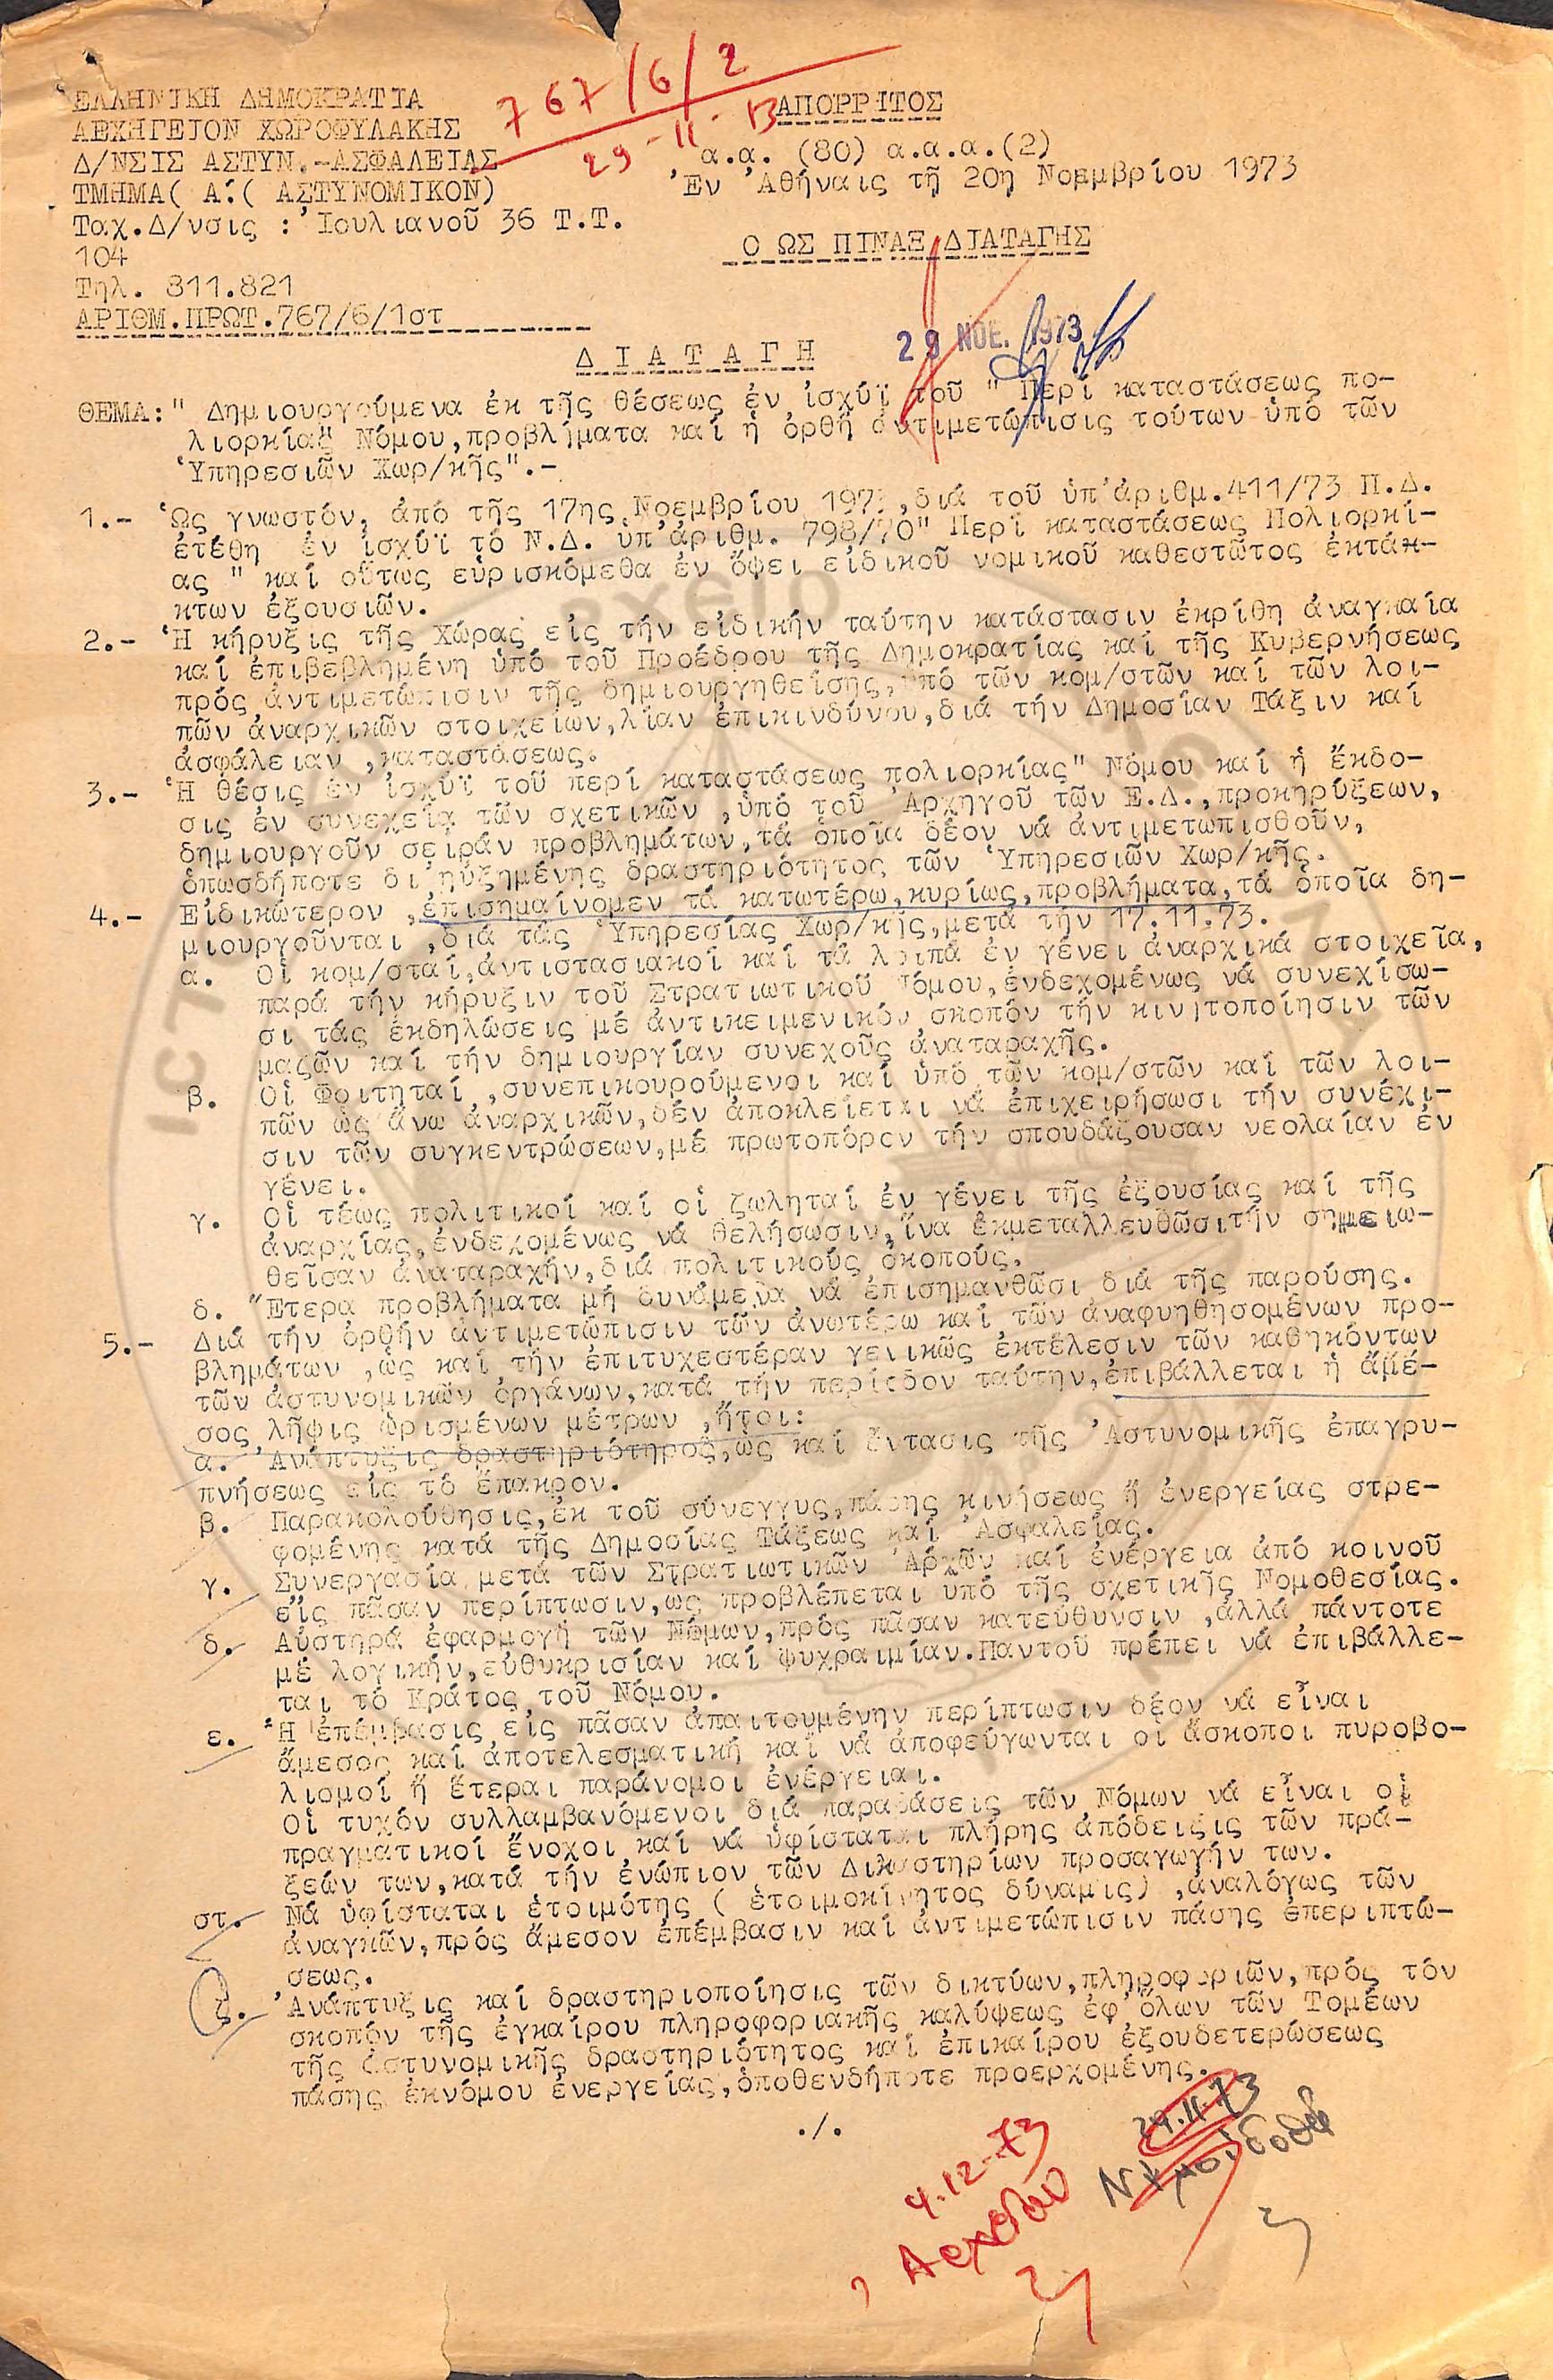 767/6/2
29-11-73
ΕΛΛΗΝΙΚΗ ΔΗΜΟΚΡΑΤΙΑ
ΑΡΧΗΓΕΙΟΝ ΧΩΡΟΦΥΛΑΚΗΣ
Δ/ΝΣΙΣ ΑΣΤΥΝ.-ΑΣΦΑΛΕΙΑΣ
ΤΜΗΜΑ( Α΄.( ΑΣΤΥΝΟΜΙΚΟΝ)
Ταχ.Δ/νσις : Ἰουλιανοῦ 36 Τ.Τ.
104
Τηλ. 811.821
ΑΡΙΘΜ.ΠΡΩΤ.767/6/1στ
ΑΠΟΡΡΗΤΟΣ
α.α. (80) α.α.α.(2)
Ἐν Ἀθήναις τῇ 20η Νοεμβρίου 1973
Ο ΩΣ ΠΙΝΑΞ ΔΙΑΤΑΓΗΣ
29 ΝΟΕ. 1973
Δ Ι Α Τ Α Γ Η
ΘΕΜΑ:" Δημιουργούμενα ἐκ τῆς θέσεως ἐν ἰσχύϊ τοῦ " Περί καταστάσεως πο-
λιορκίας" Νόμου,προβλήματα καί ἡ ὀρθή ἀντιμετώπισις τούτων ὑπό τῶν
Ὑπηρεσιῶν Χωρ/κῆς".-
1.- Ὡς γνωστόν, ἀπό τῆς 17ης Νοεμβρίου 1973,διά τοῦ ὑπ'ἀριθμ.411/73 Π.Δ.
ἐτέθη ἐν ἰσχύϊ τό Ν.Δ. ὑπ'ἀριθμ. 798/70" Περί καταστάσεως Πολιορκί-
ας " καί οὕτως εὑρισκόμεθα ἐν ὄψει εἰδικοῦ νομικοῦ καθεστῶτος ἐκτάκ-
κτων ἐξουσιῶν.
2.- Ἡ κήρυξις τῆς Χώρας εἰς τήν εἰδικήν ταύτην κατάστασιν ἐκρίθη ἀναγκαία
καί ἐπιβεβλημένη ὑπό τοῦ Προέδρου τῆς Δημοκρατίας καί τῆς Κυβερνήσεως
πρός ἀντιμετώπισιν τῆς δημιουργηθείσης,ὑπό τῶν κομ/στῶν καί τῶν λοι-
πῶν ἀναρχικῶν στοιχείων,λίαν ἐπικινδύνου,διά τήν Δημοσίαν Τάξιν καί
ἀσφάλειαν ,καταστάσεως.
3.- Ἡ θέσις ἐν ἰσχύϊ τοῦ περί καταστάσεως πολιορκίας" Νόμου καί ἡ ἔκδο-
σις ἐν συνεχείᾳ τῶν σχετικῶν ,ὑπό τοῦ Ἀρχηγοῦ τῶν Ε.Δ.,προκηρύξεων,
δημιουργοῦν σειράν προβλημάτων,τά ὁποῖα δέον νά ἀντιμετωπισθοῦν,
ὁπωσδήποτε δι'ηὐξημένης δραστηριότητος τῶν Ὑπηρεσιῶν Χωρ/κῆς.
4.- Εἰδικώτερον ,ἐπισημαίνομεν τά κατωτέρω,κυρίως,προβλήματα,τά ὁποῖα δη-
μιουργοῦνται ,διά τάς Ὑπηρεσίας Χωρ/κῆς,μετά τήν 17.11.73.
α. Οἱ κομ/σταί,ἀντιστασιακοί καί τά λοιπά ἐν γένει ἀναρχικά στοιχεῖα,
παρά τήν κήρυξιν τοῦ Στρατιωτικοῦ Νόμου,ἐνδεχομένως νά συνεχίσω-
σι τάς ἐκδηλώσεις μέ ἀντικειμενικόν σκοπόν τήν κινητοποίησιν τῶν
μαζῶν καί τήν δημιουργίαν συνεχοῦς ἀναταραχῆς.
β. Οἱ Φοιτηταί ,συνεπικουρούμενοι καί ὑπό τῶν κομ/στῶν καί τῶν λοι-
πῶν ὡς ἄνω ἀναρχικῶν,δέν ἀποκλείεται νά ἐπιχειρήσωσι τήν συνέχι-
σιν τῶν συγκεντρώσεων,μέ πρωτοπόρον τήν σπουδάζουσαν νεολαίαν ἐν
γένει.
γ. Οἱ τέως πολιτικοί καί οἱ ζωληταί ἐν γένει τῆς ἐξουσίας καί τῆς
ἀναρχίας,ἐνδεχομένως νά θελήσωσιν,ἵνα ἐκμεταλλευθῶσιτήν σημειω-
θεῖσαν ἀναταραχήν,διά πολιτικούς σκοπούς.
δ. Ἕτερα προβλήματα μή δυνάμενα νά ἐπισημανθῶσι διά τῆς παρούσης.
5.- Διά τήν ὀρθήν ἀντιμετώπισιν τῶν ἀνωτέρω καί τῶν ἀναφυηθησομένων προ-
βλημάτων ,ὡς καί τήν ἐπιτυχεστέραν γενικῶς ἐκτέλεσιν τῶν καθηκόντων
τῶν ἀστυνομικῶν ὀργάνων,κατά τήν περίοδον ταύτην,ἐπιβάλλεται ἡ ἄμε-
σος λῆψις ὡρισμένων μέτρων ,ἤτοι:
α. Ἀνάπτυξις δραστηριότητος,ὡς καί ἔντασις τῆς Ἀστυνομικῆς ἐπαγρυ-
πνήσεως εἰς τό ἔπακρον.
β. Παρακολούθησις,ἐκ τοῦ σύνεγγυς,πάσης κινήσεως ἤ ἐνεργείας στρε-
φομένης κατά τῆς Δημοσίας Τάξεως καί Ἀσφαλείας.
γ. Συνεργασία μετά τῶν Στρατιωτικῶν Ἀρχῶν καί ἐνέργεια ἀπό κοινοῦ
εἰς πᾶσαν περίπτωσιν,ὡς προβλέπεται ὑπό τῆς σχετικῆς Νομοθεσίας.
δ. Αὐστηρά ἐφαρμογή τῶν Νόμων,πρός πᾶσαν κατεύθυνσιν ,ἀλλά πάντοτε
μέ λογικήν,εὐθυκρισίαν καί ψυχραιμίαν.Παντοῦ πρέπει νά ἐπιβάλλε-
ται τό Κράτος τοῦ Νόμου.
ε. Ἡ ἐπέμβασις εἰς πᾶσαν ἀπαιτουμένην περίπτωσιν δέον νά εἶναι
ἄμεσος καί ἀποτελεσματική καί νά ἀποφεύγωνται οἱ ἄσκοποι πυροβο-
λισμοί ἤ ἕτεραι παράνομοι ἐνέργειαι.
Οἱ τυχόν συλλαμβανόμενοι διά παραβάσεις τῶν Νόμων νά εἶναι οἱ
πραγματικοί ἔνοχοι καί νά ὑφίσταται πλήρης ἀπόδειξις τῶν πρά-
ξεών των,κατά τήν ἐνώπιον τῶν Δικαστηρίων προσαγωγήν των.
στ. Νά ὑφίσταται ἑτοιμότης ( ἑτοιμοκίνητος δύναμις) ,ἀναλόγως τῶν
ἀναγκῶν,πρός ἄμεσον ἐπέμβασιν καί ἀντιμετώπισιν πάσης επεριπτώ-
σεως.
ζ. Ἀνάπτυξις καί δραστηριοποίησις τῶν δικτύων,πληροφοριῶν,πρός τόν
σκοπόν τῆς ἐγκαίρου πληροφοριακῆς καλύψεως ἐφ'ὅλων τῶν Τομέων
τῆς ἀστυνομικῆς δραστηριότητος καί ἐπικαίρου ἐξουδετερώσεως
πάσης ἐκνόμου ἐνεργείας,ὁποθενδήποτε προερχομένης.
./.
29.11.73
4.12.73
Αρχείον